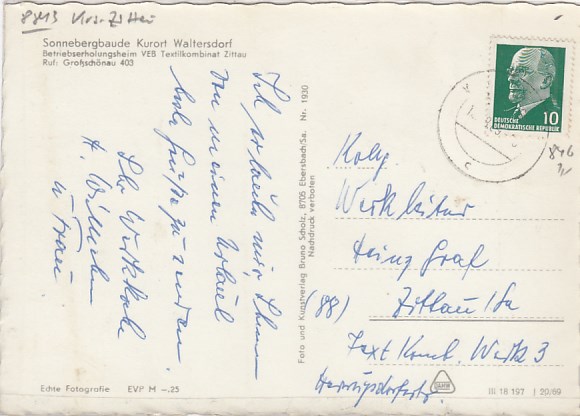 8813 Krs. Zittau
Sonnebergbaude Kurort Waltersdorf
Betriebserholungsheim VEB Textilkombinat Zittau
Ruf: Großschönau 403
Ich erlaube mir, Ihnen
von meinem Urlaub
beste Grüße zu senden.
Ihr Werkkole
H.
u. Frau
Foto und Kunstverlag Bruno Scholz, 8705 Ebersbach/Sa. Nr. 1930
Nachdruck verboten
10
DEUTSCHE
DEMOKRATISCHE REPUBLIK
Koll.
Werkleiter
Heinz Graf
(88) Zittau/Sa
Text. Komb. Werk 3
Echte Fotografie EVP M –.25
III 18 197 J 20/69